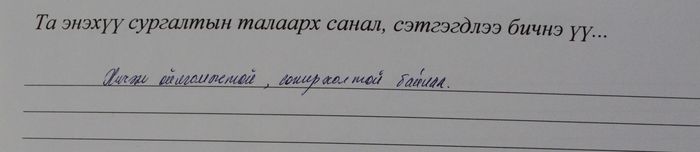 Та энэхүү сургалтын талаарх санал, сэтгэгдлээ бичнэ үү...
Хичээл ойлгомжтой, сонирхолтой байлаа.